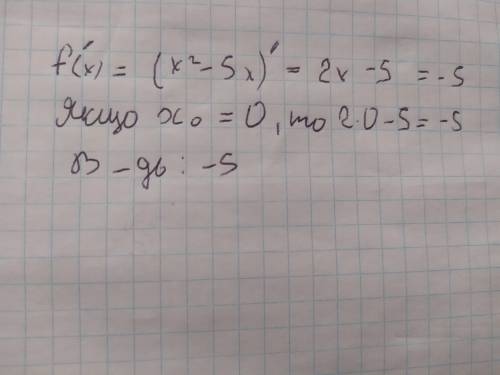 f'(x) = (x² - 5x)' = 2x - 5 = -5
Якщо x₀ = 0, то 2·0 - 5 = -5
В-дь: -5